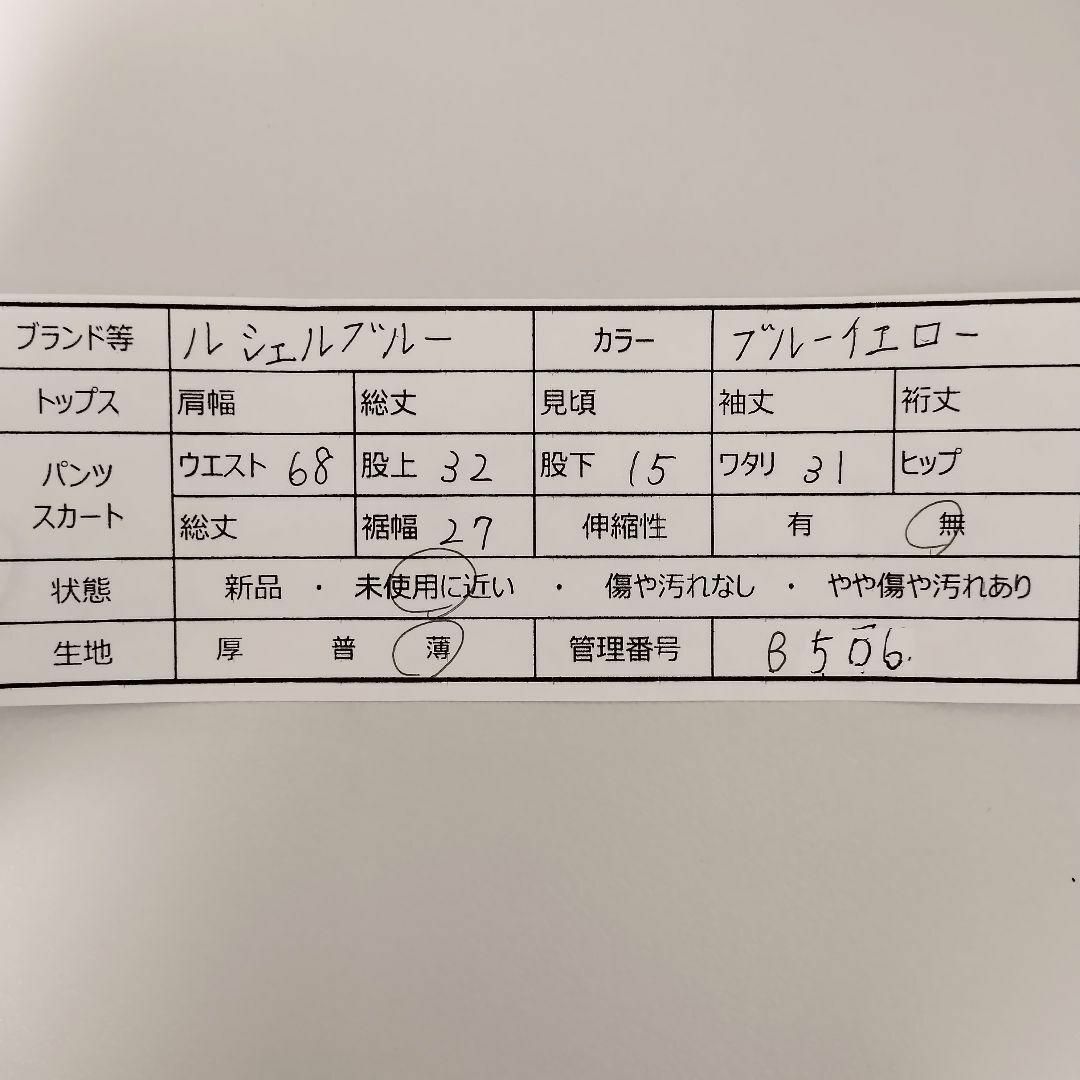 ブランド等 ルシェルブルー カラー ブルーイエロー
トップス 肩幅 総丈 見頃 袖丈 裄丈
パンツ スカート ウエスト 68 股上 32 股下 15 ワタリ 31 ヒップ
総丈 裾幅 27 伸縮性 有 無
状態 新品 ・ 未使用に近い ・ 傷や汚れなし ・ やや傷や汚れあり
生地 厚 普 薄 管理番号 B506.